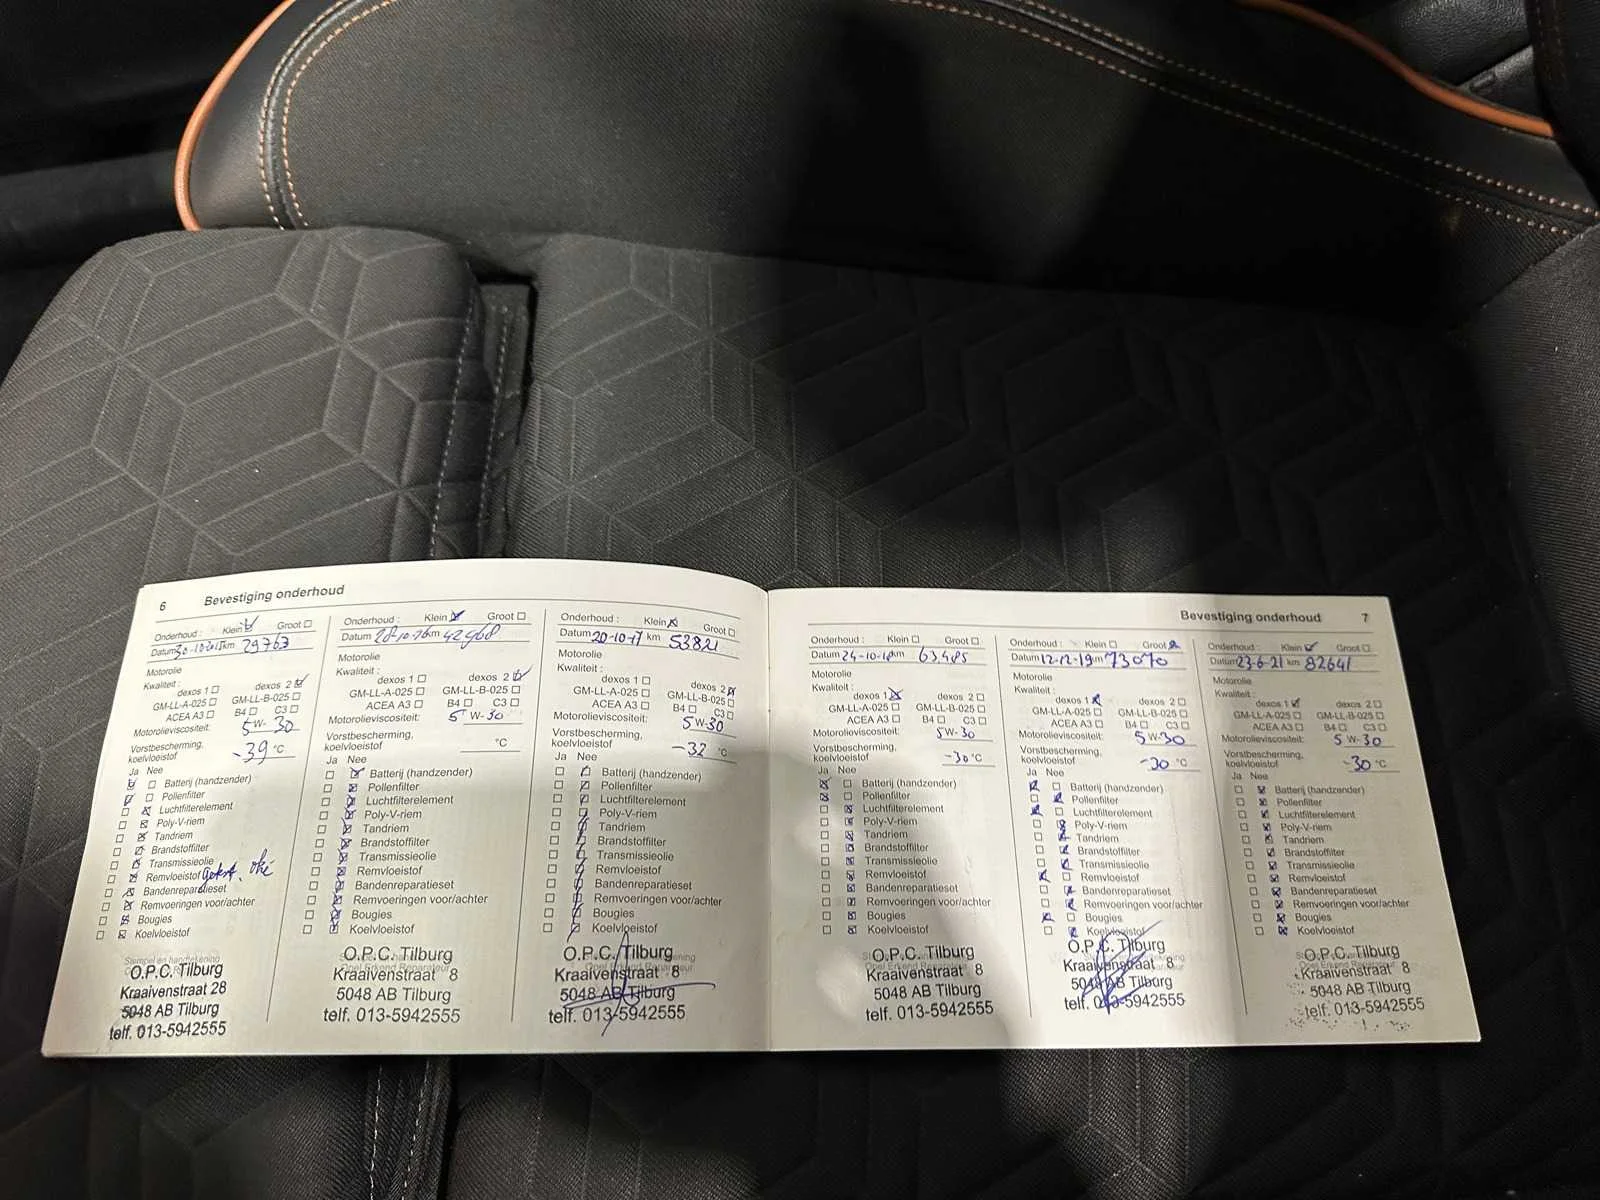 6 Bevestiging onderhoud
Onderhoud : Klein Groot
Datum 30-10-2015 km 29763
Motorolie
Kwaliteit :
dexos 1 dexos 2
GM-LL-A-025 GM-LL-B-025
ACEA A3 B4 C3
Motorolieviscositeit: 5W-30
Vorstbescherming,
koelvloeistof -39 °C
Ja Nee
Batterij (handzender)
Pollenfilter
Luchtfilterelement
Poly-V-riem
Tandriem
Brandstoffilter
Transmissieolie
Remvloeistof
Bandenreparatieset
Remvoeringen voor/achter
Bougies
Koelvloeistof
Stempel en handtekening
O.P.C. Tilburg
Kraaivenstraat 28
5048 AB Tilburg
telf. 013-5942555
Onderhoud : Klein Groot
Datum 28-10-16 km 42968
Motorolie
Kwaliteit :
dexos 1 dexos 2
GM-LL-A-025 GM-LL-B-025
ACEA A3 B4 C3
Motorolieviscositeit: 5 W-30
Vorstbescherming,
koelvloeistof °C
Ja Nee
Batterij (handzender)
Pollenfilter
Luchtfilterelement
Poly-V-riem
Tandriem
Brandstoffilter
Transmissieolie
Remvloeistof
Bandenreparatieset
Remvoeringen voor/achter
Bougies
Koelvloeistof
O.P.C. Tilburg
Kraaivenstraat 8
5048 AB Tilburg
telf. 013-5942555
Onderhoud : Klein Groot
Datum 20-10-17 km 53821
Motorolie
Kwaliteit :
dexos 1 dexos 2
GM-LL-A-025 GM-LL-B-025
ACEA A3 B4 C3
Motorolieviscositeit: 5W-30
Vorstbescherming,
koelvloeistof -32 °C
Ja Nee
Batterij (handzender)
Pollenfilter
Luchtfilterelement
Poly-V-riem
Tandriem
Brandstoffilter
Transmissieolie
Remvloeistof
Bandenreparatieset
Remvoeringen voor/achter
Bougies
Koelvloeistof
O.P.C. Tilburg
Kraaivenstraat 8
5048 AB Tilburg
telf. 013-5942555
Bevestiging onderhoud 7
Onderhoud : Klein Groot
Datum 24-10-18 km 63485
Motorolie
Kwaliteit :
dexos 1 dexos 2
GM-LL-A-025 GM-LL-B-025
ACEA A3 B4 C3
Motorolieviscositeit: 5W-30
Vorstbescherming,
koelvloeistof -30 °C
Ja Nee
Batterij (handzender)
Pollenfilter
Luchtfilterelement
Poly-V-riem
Tandriem
Brandstoffilter
Transmissieolie
Remvloeistof
Bandenreparatieset
Remvoeringen voor/achter
Bougies
Koelvloeistof
O.P.C. Tilburg
Kraaivenstraat 8
5048 AB Tilburg
telf. 013-5942555
Onderhoud : Klein Groot
Datum 12-12-19 km 73070
Motorolie
Kwaliteit :
dexos 1 dexos 2
GM-LL-A-025 GM-LL-B-025
ACEA A3 B4 C3
Motorolieviscositeit: 5W-30
Vorstbescherming,
koelvloeistof -30 °C
Ja Nee
Batterij (handzender)
Pollenfilter
Luchtfilterelement
Poly-V-riem
Tandriem
Brandstoffilter
Transmissieolie
Remvloeistof
Bandenreparatieset
Remvoeringen voor/achter
Bougies
Koelvloeistof
O.P.C. Tilburg
Kraaivenstraat 8
5048 AB Tilburg
telf. 013-5942555
Onderhoud : Klein Groot
Datum 23-6-21 km 82641
Motorolie
Kwaliteit :
dexos 1 dexos 2
GM-LL-A-025 GM-LL-B-025
ACEA A3 B4 C3
Motorolieviscositeit: 5W-30
Vorstbescherming,
koelvloeistof -30 °C
Ja Nee
Batterij (handzender)
Pollenfilter
Luchtfilterelement
Poly-V-riem
Tandriem
Brandstoffilter
Transmissieolie
Remvloeistof
Bandenreparatieset
Remvoeringen voor/achter
Bougies
Koelvloeistof
O.P.C. Tilburg
Kraaivenstraat 8
5048 AB Tilburg
telf. 013-5942555